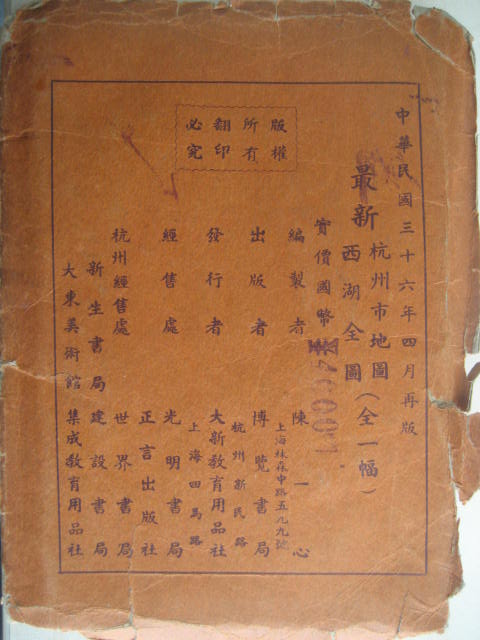 中華民國三十六年四月再版
最新
杭州市地圖
西湖全圖
（全一幅）
實價國幣
編製者 陳一心
上海林森中路五九九號
出版者 博覽書局
杭州新民路
發行者 大新敎育用品社
上海四馬路
經售處 光明書局
正言出版社
杭州經售處 世界書局
新生書局 建設書局
大東美術館 集成敎育用品社
版權
所有
翻印
必究